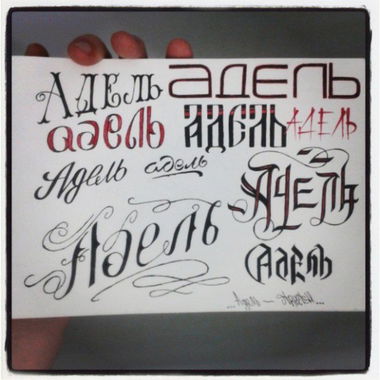 Адель
адель
адель
Адель
Адель
Адель
адель
Адель
Адель
Адель
...Адель —